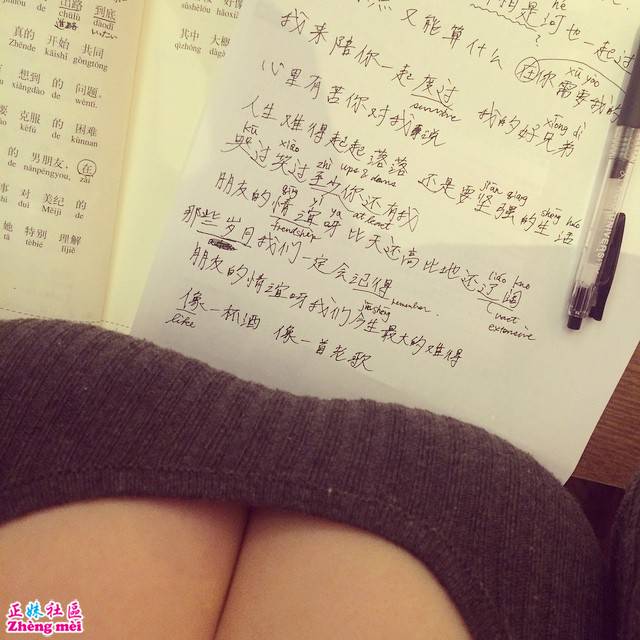 到底
dàodǐ
真的 开始 共同
Zhēnde kāishǐ gòngtóng
想到 的 问题。
xiǎngdào de wèntí.
要 克服 的 困难
kèfú de kùnnan
的 男朋友，在
de nánpéngyou, zài
事 对 美纪 的
duì Měijì de
她 特别 理解
tā tèbié lǐjiě
其中
qízhōng
也一起过
又能算什么 在你需要我的
xū yào
我来陪你一起度过 我的好兄弟
survive
xiōng dì
心里有苦你对我说
人生难得起起落落 还是要坚强的生活
ups & downs
jiān qiáng
shēng huó
哭过笑过至少你还有我
kū
xiào
zhì
at least
朋友的情谊呀比天还高比地还辽阔
qíng yì ya
friendship
liáo kuò
vast
extensive
那些岁月我们一定会记得
remember
朋友的情谊呀我们今生最大的难得
jīn shēng
像一杯酒 像一首老歌
like
正妹社區
Zhèng mèi